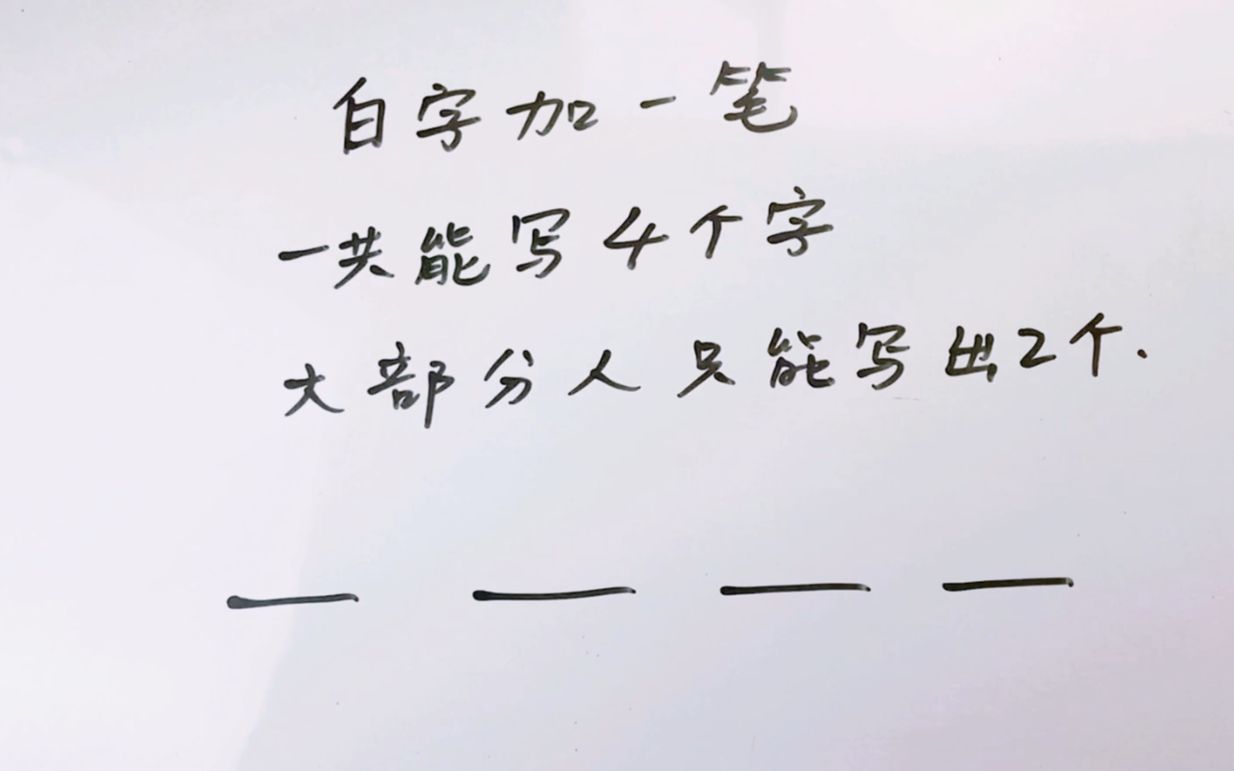 白字加一笔
一共能写4个字
大部分人只能写出2个.